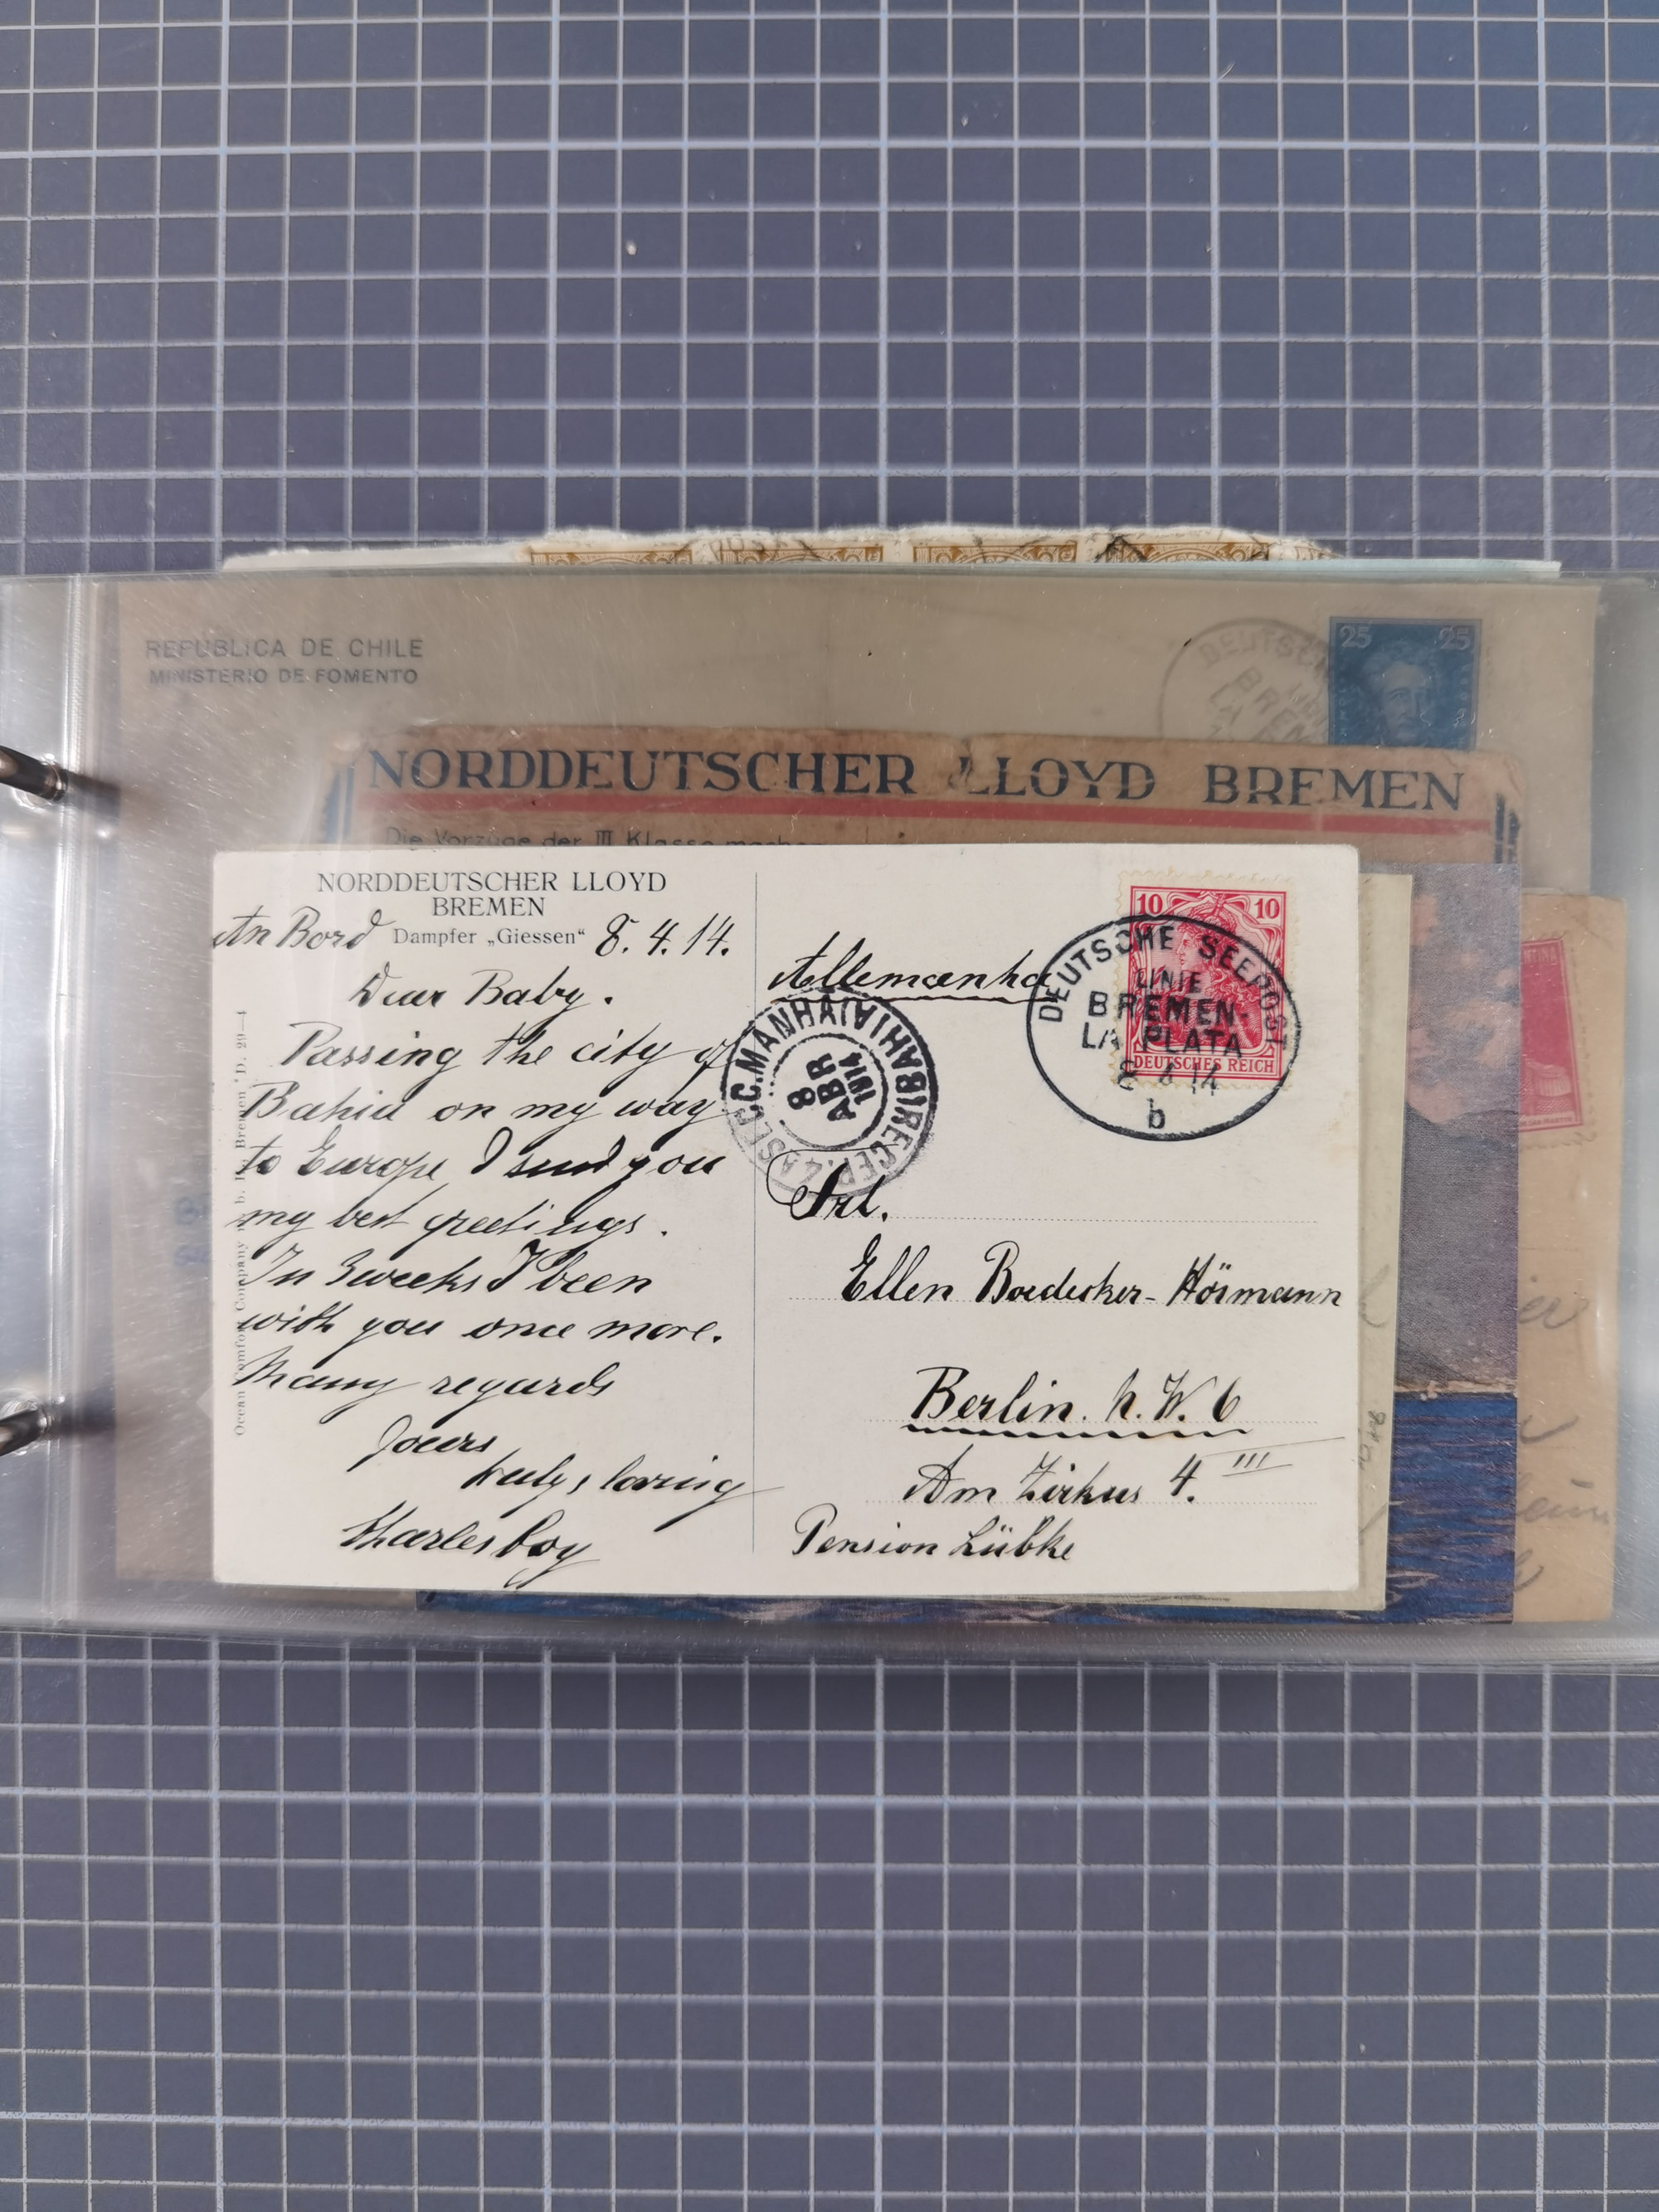 REPUBLICA DE CHILE
MINISTERIO DE FOMENTO
25 25
DEUTSCH
BREM
NORDDEUTSCHER LLOYD BREMEN
Die Vorzüge der III Klasse machen
NORDDEUTSCHER LLOYD
BREMEN
An Bord Dampfer „Giessen“ 8. 4. 14.
Dear Baby.
Passing the city of
Bahia on my way
to Europe I send you
my best greetings.
In 3 weeks I been
with you once more.
Many regards
Yours
truly, loving
Charles boy
Ocean Comfort Company
Bremen
D. 29—4
10 10
DEUTSCHES REICH
DEUTSCHE SEEPOST
LINIE
BREMEN-
LA PLATA
8 4 14
b
Allemanha
MANHA
BAHIA
8
ABR
1914
Frl.
Ellen Boedecker-Hörmann
Berlin. N. W. 6
Am Zirkus 4. III
Pension Lübke